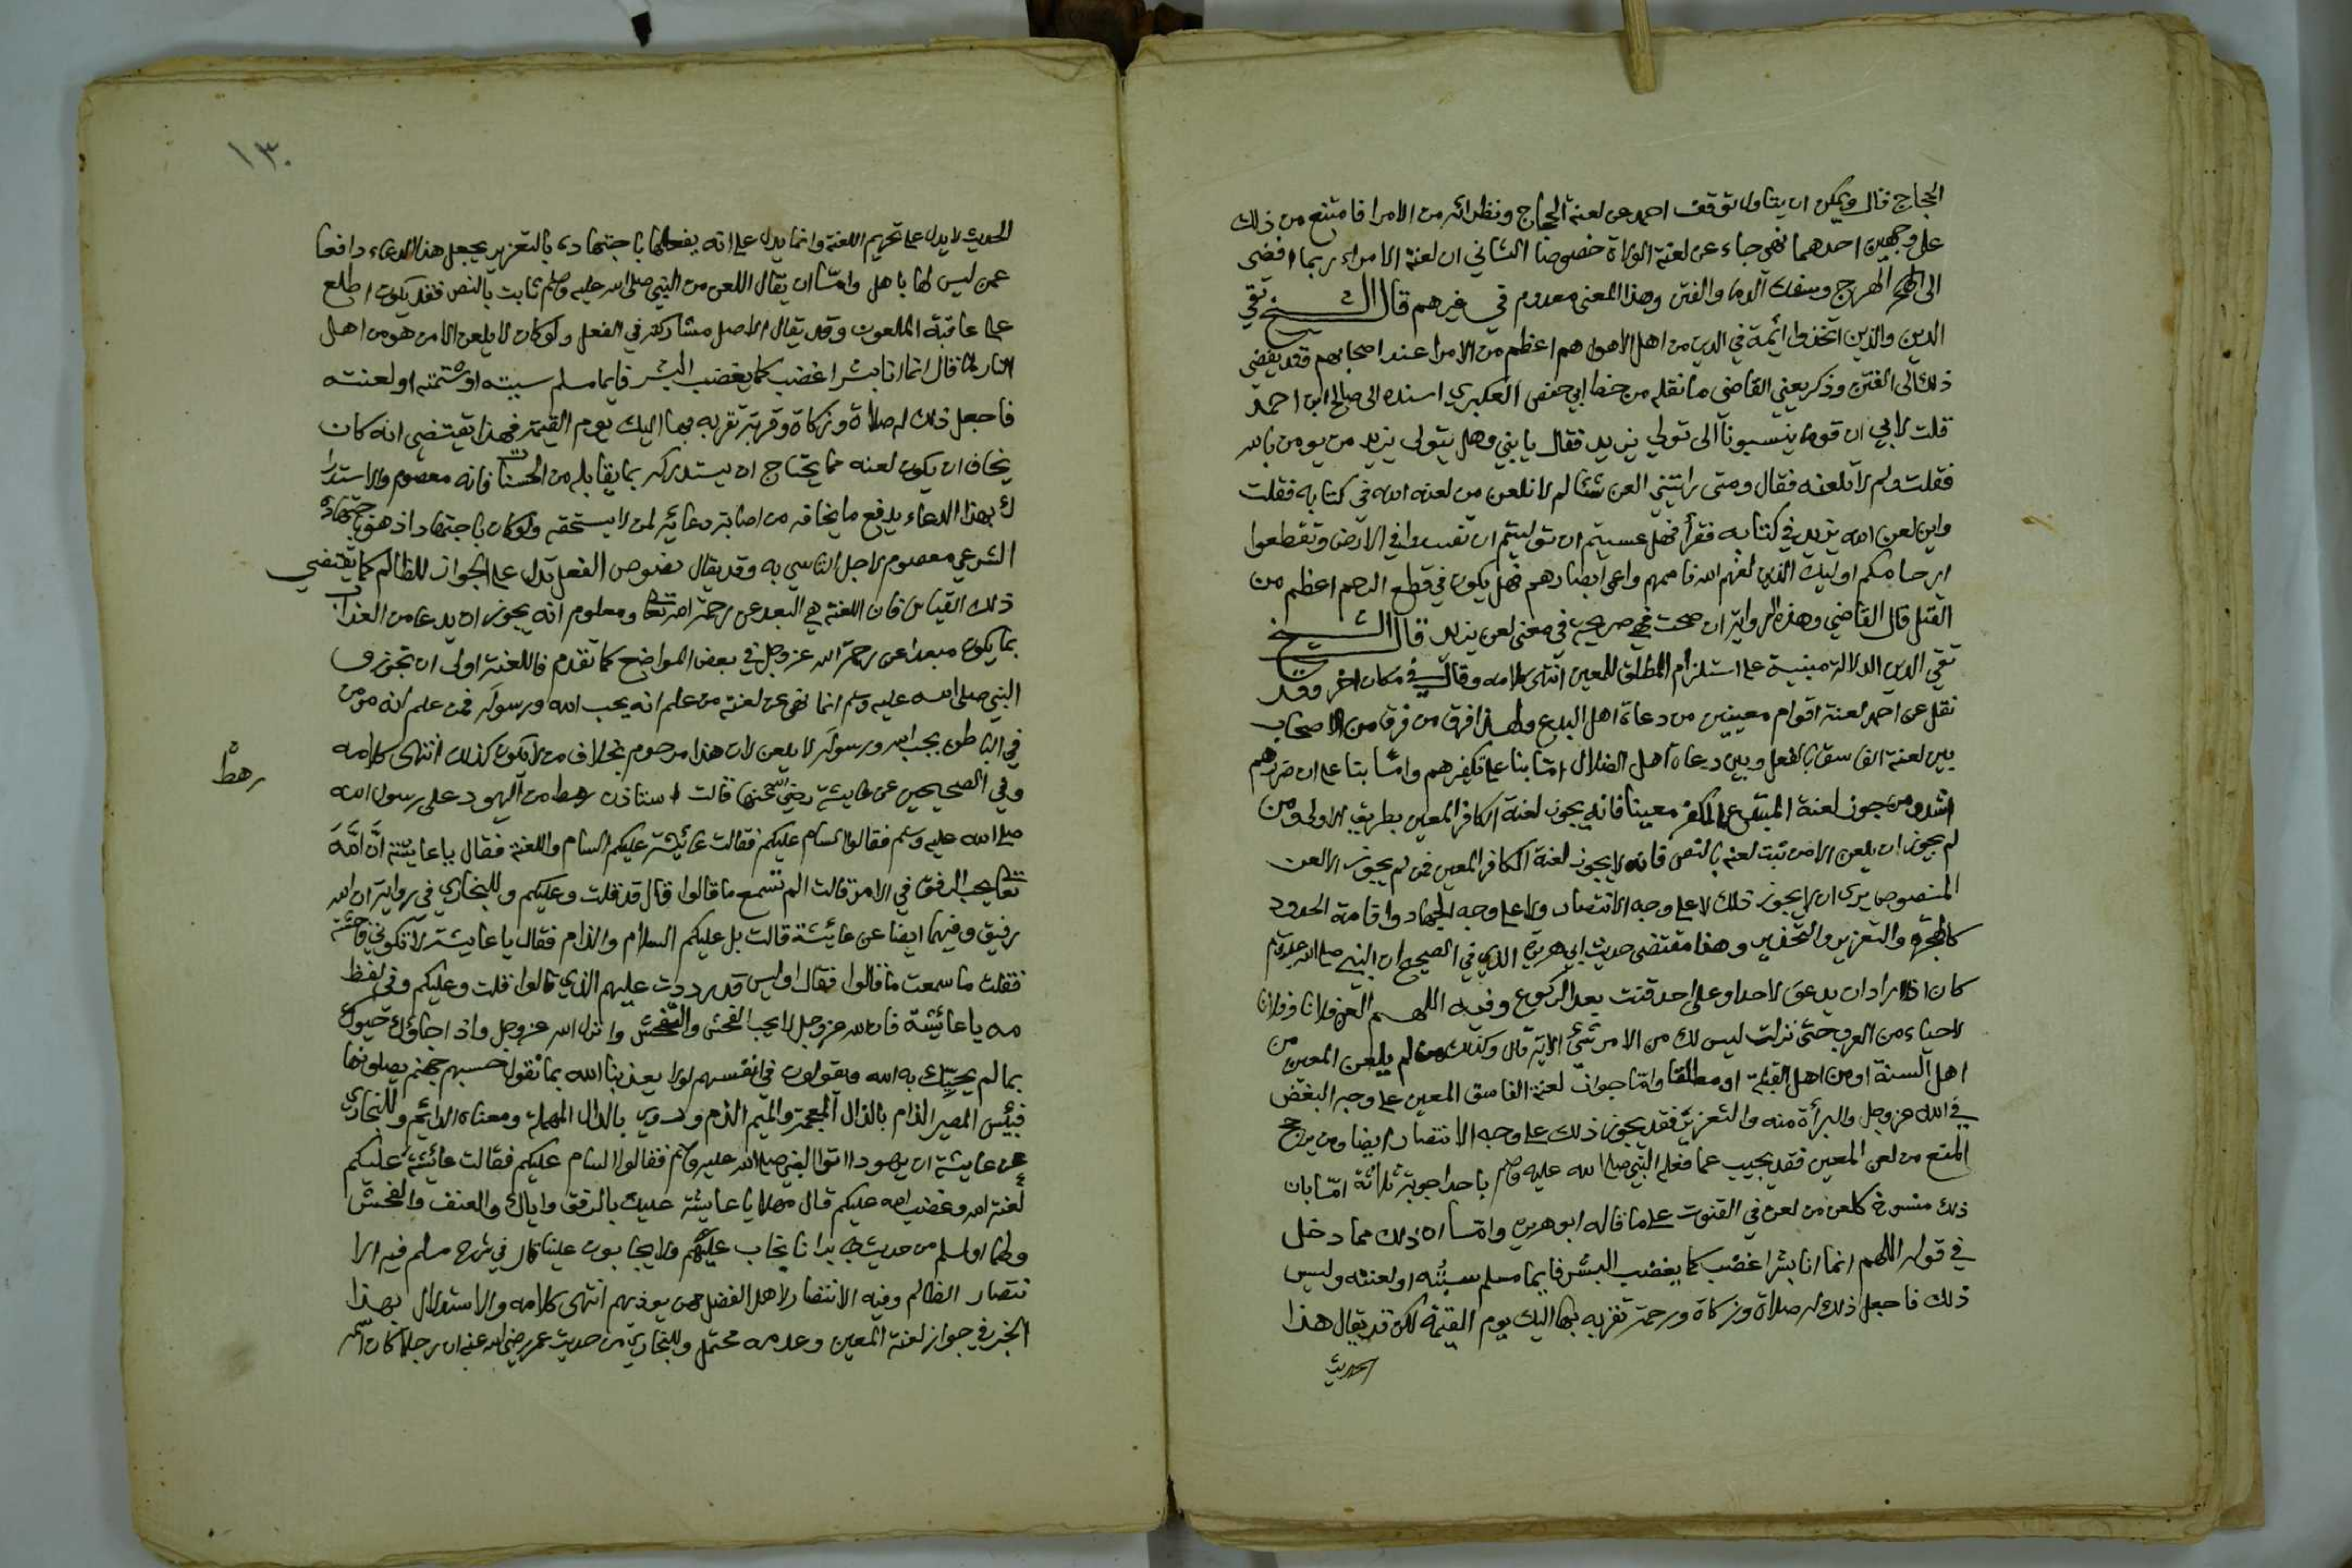 الحجاج قال ويمكن ان يتاول توقف احمد عن لعنة الحجاج ونظرائه من الامرا فامتنع من ذلك
على وجهين احدهما نهى جاء عن لعنة الولاة خصوصا الثاني ان لعنة الامراء ربما افضى
الى الهرج وسفك الدما والفتن وهذا المعنى معدوم في غيرهم قال الشيخ تقي
الدين والذين اتخذوا ائمة في الدين من اهل الاهوا هم اعظم من الامرا عند اصحابهم فقد يفضي
ذلك الى الفتن وذكر يعني القاضي ما نقله من خط ابي حفص العكبري اسنده الى صالح ابن احمد
قلت لابي ان قوما ينسبونا الى تولي يزيد فقال يا بني وهل يتولى يزيد من يومن بالله
فقلت ولم لا تلعنه فقال ومتى رايتني العن شئا لم لا نلعن من لعنه الله في كتابه فقلت
واين لعن الله يزيد في كتابه فقرأ فهل عسيتم ان توليتم ان تفسدوا في الارض وتقطعوا
ارحامكم اوليك الذين لعنهم الله فاصمهم واعمى ابصارهم فهل يكون في قطع الرحم اعظم من
القتل قال القاضي وهذه الرواية ان صحت فهي صريحة في معنى لعن يزيد قال الشيخ
تقي الدين الدلالة مبنية على استلزام المطلق للمعين انتهى كلامه وقال في مكان اخر وقد
نقل عن احمد لعنة اقوام معينين من دعاة اهل البدع ولهذا فرق من فرق من الاصحاب
بين لعنة الفاسق بالفعل وبين دعاة اهل الضلال اما بنا على تكفيرهم واما بنا على ان ضررهم
اشد ومن جوز لعنة المبتدع المكفر معينا فانه يجوز لعنة الكافر المعين بطريق الاولى ومن
لم يجوز ان يلعن الا من ثبت لعنه بالنص فانه لا يجوز لعنة الكافر المعين فمن لم يجوز الا لعن
المنصوص يرى ان لا يجوز ذلك لا على وجه الانتصار ولا على وجه الجهاد واقامة الحدود
كالهجرة والتعزير والتحذير وهذا مقتضى حديث ابي هريرة الذي في الصحيح ان النبي صلى الله عليه وسلم
كان اذا اراد ان يدعو لاحد او على احد قنت بعد الركوع وفيه اللهم العن فلانا وفلانا
لاحياء من العرب حتى نزلت ليس لك من الامر شئ الاية قال وكذلك من لم يلعن المعين من
اهل السنة او من اهل القبلة او مطلقا واما جواز لعنة الفاسق المعين على وجه البغض
في الله عز وجل والبرأة منه والتعزير فقد يجوز ذلك على وجه الانتصار ايضا ومن يرجح
المنع من لعن المعين فقد يجيب عما فعله النبي صلى الله عليه وسلم باحد اجوبة ثلاثة اما بان
ذلك منسوخ كلعن من لعن في القنوت على ما قاله ابو هريرة واما ان ذلك مما دخل
في قوله اللهم انما انا بشر اغضب كما يغضب البشر فايما مسلم سببته او لعنته وليس
ذلك فاجعل ذلك له صلاة وزكاة ورحمة تقربه بها اليك يوم القيمة لكن قد يقال هذا
الحديث
١٣٠
الحديث لا يدل على تحريم اللعنة وانما يدل على انه يفعلها باجتهاده بالتعزير يجعل هذا الدعاء دافعا
عمن ليس لها باهل واما ان يقال اللعن من النبي صلى الله عليه وسلم ثابت بالنص فقد يكون اطلع
على عاقبة الملعون وقد يقال الاصل مشاركته في الفعل ولو كان لا يلعن الا من هو من اهل
النار لما قال انما انا بشر اغضب كما يغضب البشر فايما مسلم سببته او شتمته او لعنته
فاجعل ذلك له صلاة وزكاة وقربة تقربه بها اليك يوم القيمة فهذا يقتضي انه كان
يخاف ان يكون لعنه مما يحتاج ان يستدركه بما يقابله من الحسنات فانه معصوم والاستدرا
ك بهذا الدعاء يدفع ما يخافه من اصابة دعائه لمن لا يستحقه ولو كان باجتهاد اذ هو باجتهاده
الشرعي معصوم لاجل التاسي به وقد يقال نصوص الفعل تدل على الجواز للظالم كما يقتضي
ذلك القياس فان اللعنة هي البعد عن رحمة الله تعالى ومعلوم انه يجوز ان يدعا من العذاب
بما يكون مبعدا عن رحمة الله عز وجل في بعض المواضع كما تقدم فاللعنة اولى ان تجوز و
النبي صلى الله عليه وسلم انما نهى عن لعنة من علم انه يحب الله ورسوله فمن علم انه مومن
في الباطن يحب الله ورسوله لا يلعن لان هذا مرحوم بخلاف من لا يكون كذلك انتهى كلامه
وفي الصحيحين عن عايشة رضي الله عنها قالت استاذن رهط من اليهود على رسول الله
رهط
صلى الله عليه وسلم فقالوا السام عليكم فقالت عائشة عليكم السام واللعنة فقال يا عايشة انَّ الله
تعالى يحب الرفق في الامر قالت الم تسمع ما قالوا قال قد قلت وعليكم وللبخاري في رواية ان الله
رفيق وفيهما ايضا عن عائشة قالت بل عليكم السام والذام فقال يا عايشة لا تكوني فاحشة
فقلت ما سمعت ما قالوا فقال اوليس قد رددت عليهم الذي قالوا قلت وعليكم وفي لفظ
مه يا عائشة فان الله عز وجل لا يحب الفحش والتفحش وانزل الله عز وجل واذا جاؤك حيوك
بما لم يحيك به الله ويقولون في انفسهم لولا يعذبنا الله بما نقول حسبهم جهنم يصلونها
فبئس المصير الذام بالذال المعجمة والميم الذم وروي بالدال المهملة ومعناه الدائم وللبخاري
عن عايشة ان يهودا اتوا النبي صلى الله عليه وسلم فقالوا السام عليكم فقالت عائشة عليكم
لعنة الله وغضب الله عليكم قال مهلا يا عايشة عليك بالرفق واياك والعنف والفحش
ولهما او لمسلم من حديث جابر انا نجاب عليهم ولا يجابون علينا قال في شرح مسلم فيه الا
نتصار الظالم وفيه الانتصار لاهل الفضل ممن يوذيهم انتهى كلامه والاستدلال بهذا
الخبر في جواز لعنة المعين وعدمه محتمل وللبخاري من حديث عمر رضي الله عنه ان رجلا كان اسمه